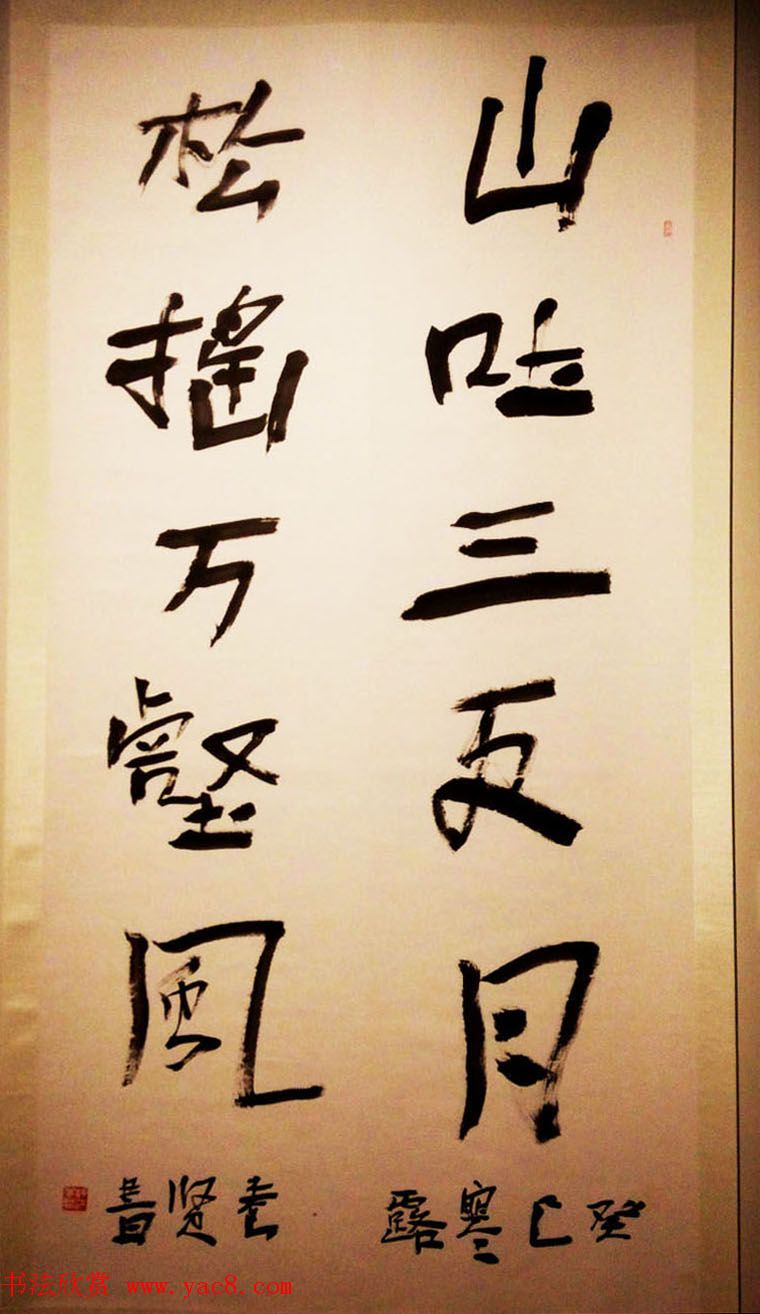 山吐三更月
松摇万壑风
癸巳寒露
秀贤书
书法欣赏 www.yac8.com